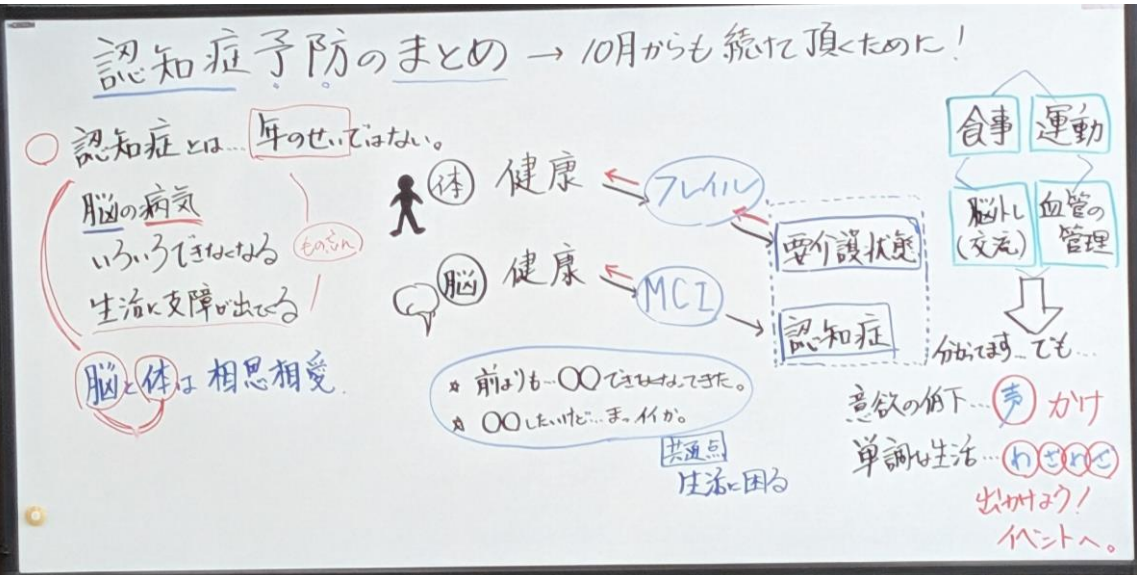 認知症予防のまとめ → 10月からも続けて頂くために!
○ 認知症とは… 年のせいではない。
脳の病気
いろいろできなくなる
もの忘れ
生活に支障が出てくる
脳と体は相思相愛
体 健康
フレイル
要介護状態
脳 健康
MCI
認知症
☆ 前よりも…○○できなくなってきた。
☆ ○○したいけど…まっイイか。
共通点
生活に困る
食事 運動
脳トレ(交流)
血管の管理
分かってます…でも…
意欲の低下…声かけ
単調な生活…わざわざ
出かけよう!
イベントへ。